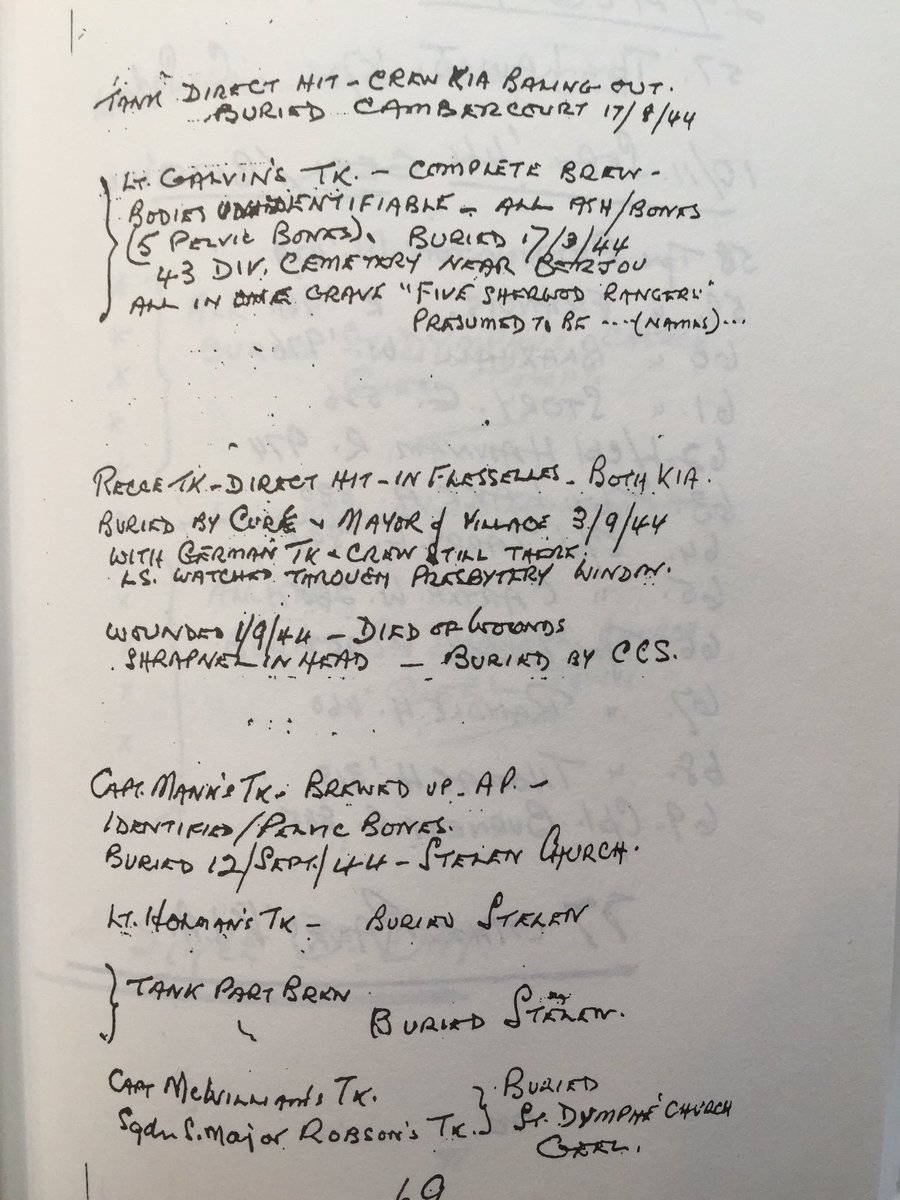 TANK DIRECT HIT - CREW KIA BALING OUT.
BURIED CAMBERCOURT 17/8/44
LT. GALVIN'S TK. - COMPLETE BREW -
BODIES UNIDENTIFIABLE - ALL ASH/BONES
(5 PELVIC BONES). BURIED 17/8/44
43 DIV. CEMETERY NEAR BERJOU
ALL IN ONE GRAVE "FIVE SHERWOD RANGERS"
PRESUMED TO BE ....(NAMES)...
RECCE TK - DIRECT HIT - IN FLESSELLES - BOTH KIA.
BURIED BY CURÉ & MAYOR of VILLAGE 3/9/44
WITH GERMAN TK & CREW STILL THERE.
L.S. WATCHED THROUGH PRESBYTERY WINDOW.
WOUNDED 1/9/44 - DIED OF WOUNDS
SHRAPNEL IN HEAD - BURIED BY CCS.
CAPT. MANN'S TK - BREWED UP - AP. -
IDENTIFIED/PELVIC BONES.
BURIED 12/SEPT./44 - STELEN CHURCH.
LT. HOLMAN'S TK - BURIED STELEN
TANK PART BREW
BURIED STELEN.
CAPT McWILLIAM'S TK. BURIED
Sqdn S. Major ROBSON'S TK. ST. DYMPHE' CHURCH
GEEL.
69